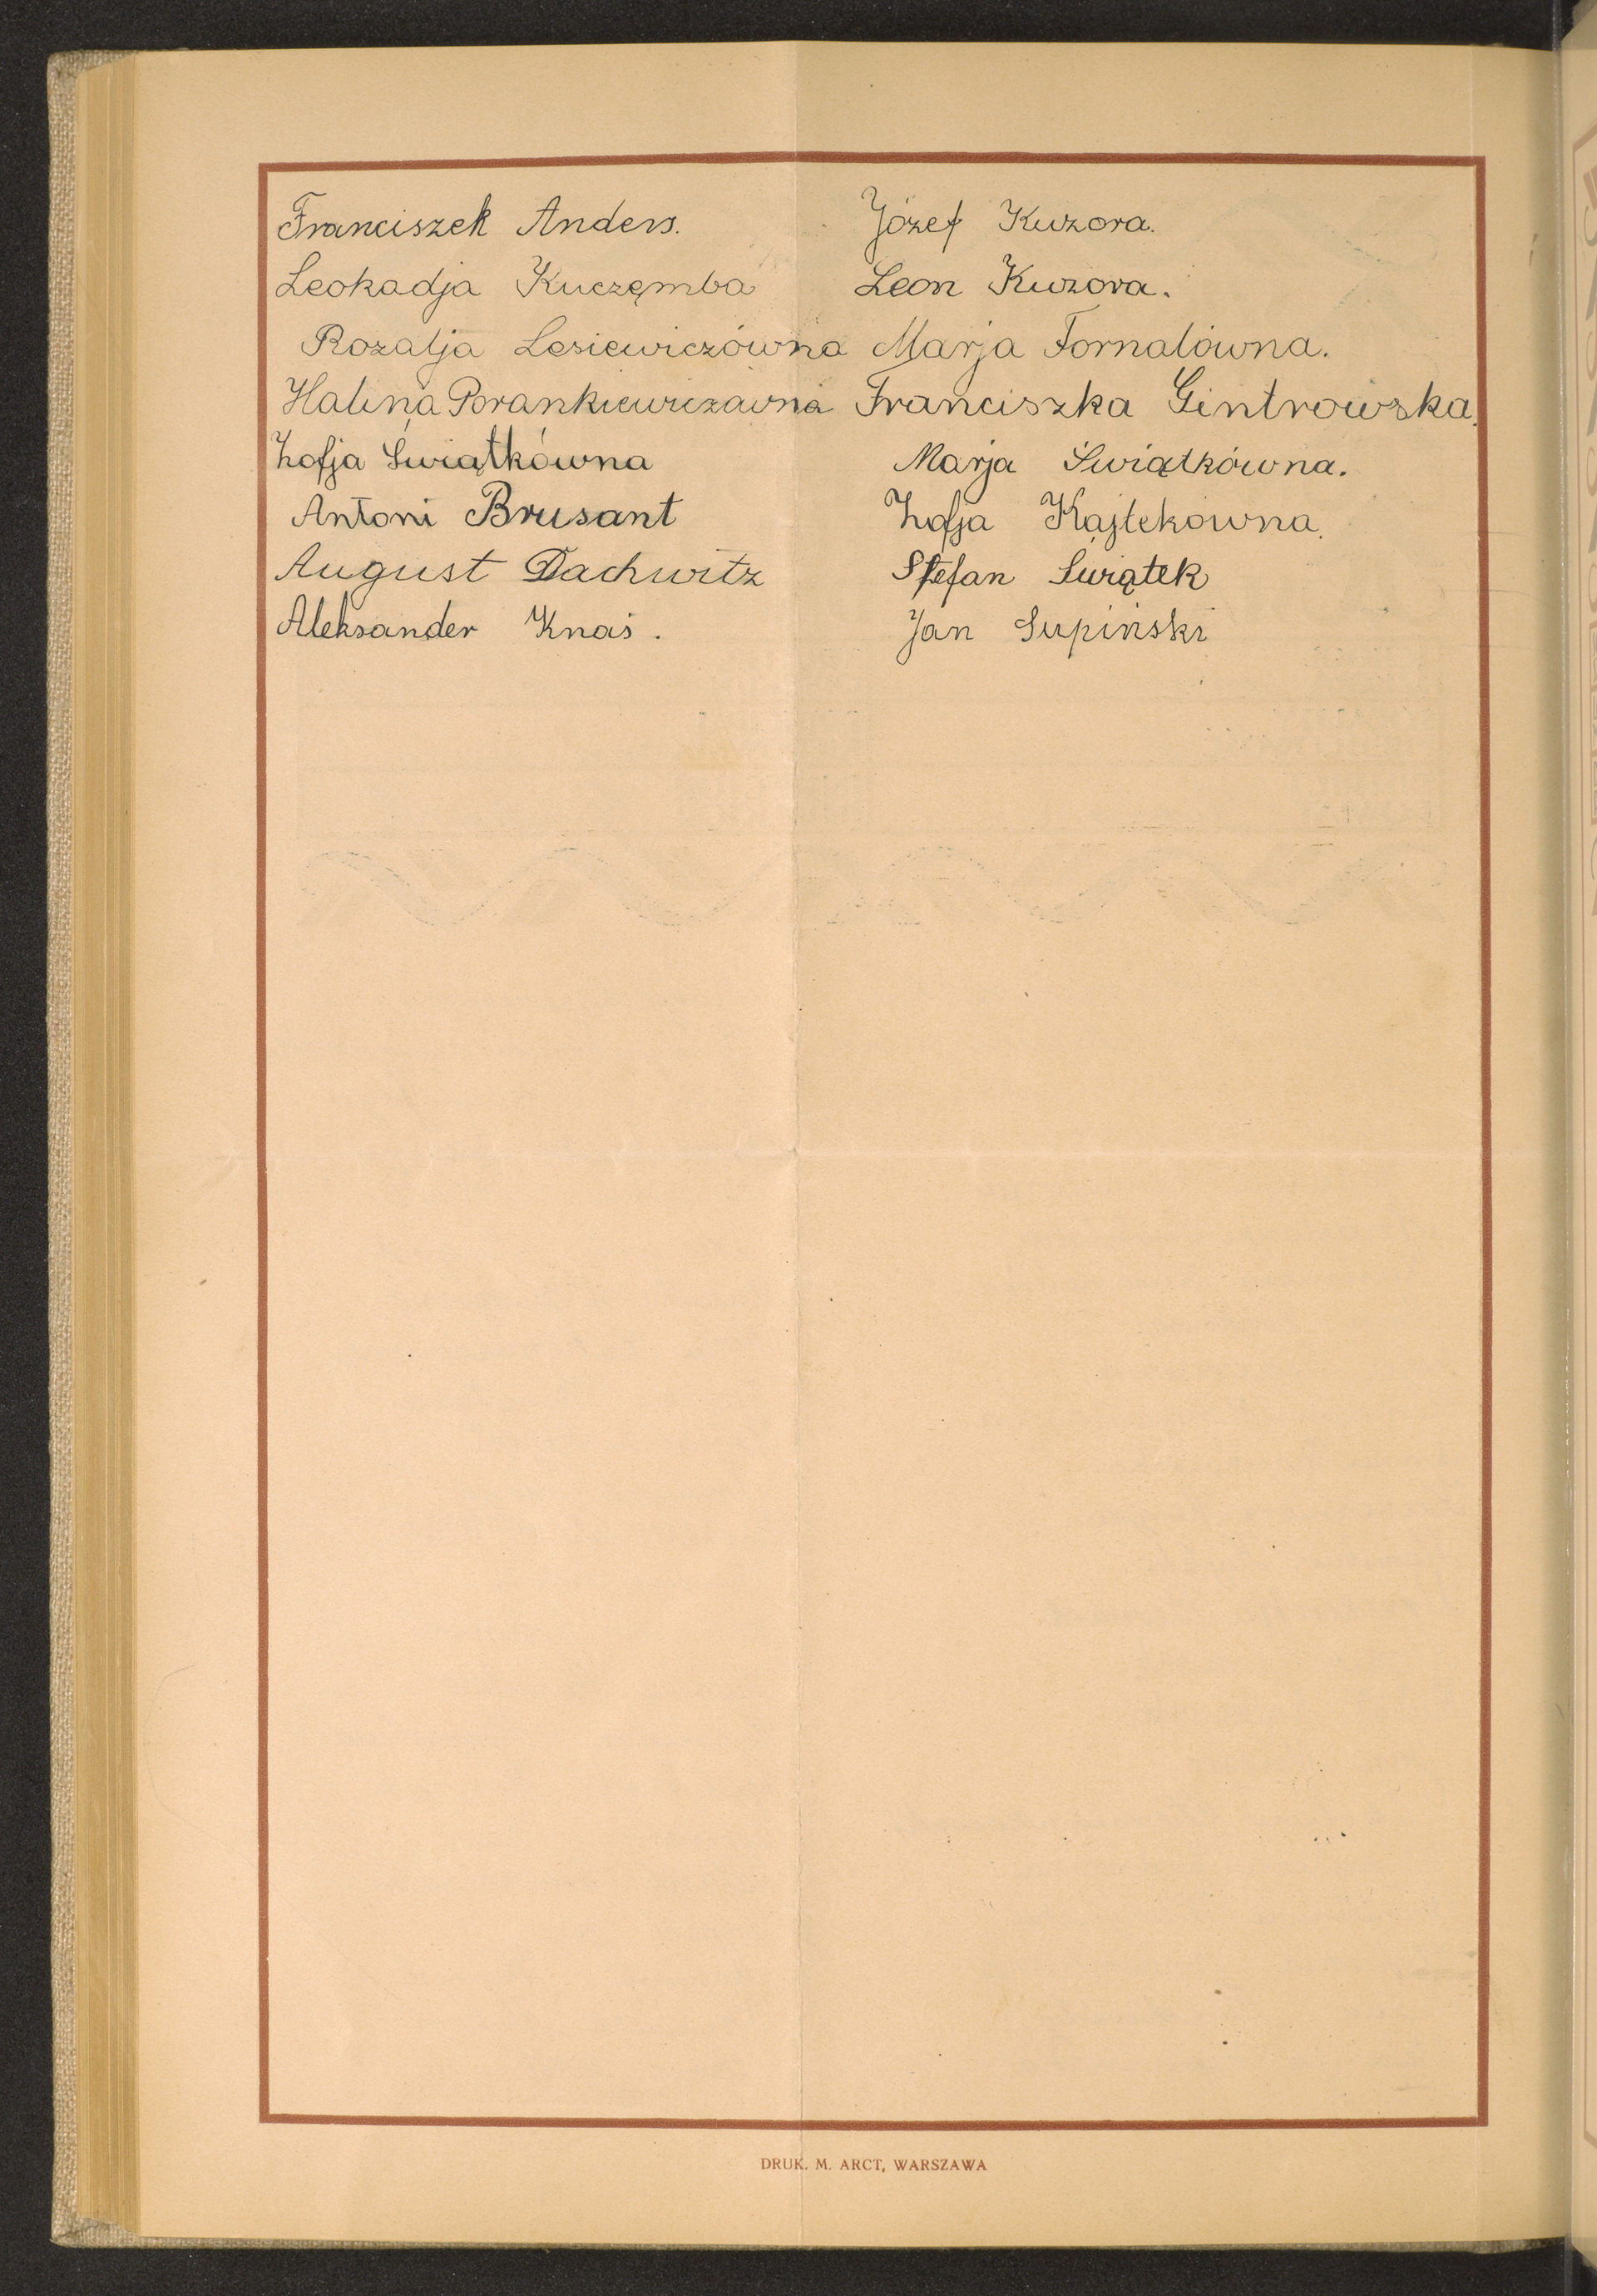 Franciszek Anders. Józef Kuzora.
Leokadja Kuczęmba Leon Kuzora.
Rozalja Lesiewiczówna Marja Fornalówna.
Halina Porankiewiczówna Franciszka Gintrowska.
Zofja Świątkówna Marja Świątkówna.
Antoni Brusant Zofja Kajtekówna.
August Dachwitz Stefan Świątek
Aleksander Knaś. Jan Supiński
DRUK. M. ARCT, WARSZAWA